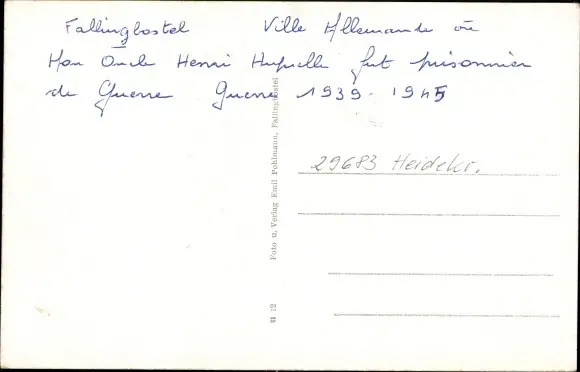 Fallingbostel Ville Allemande où
Mon Oncle Henri Hupelle fut prisonnier
de Guerre Guerre 1939-1945
29683 Heidekr.
Foto u. Verlag Emil Pohlmann, Fallingbostel